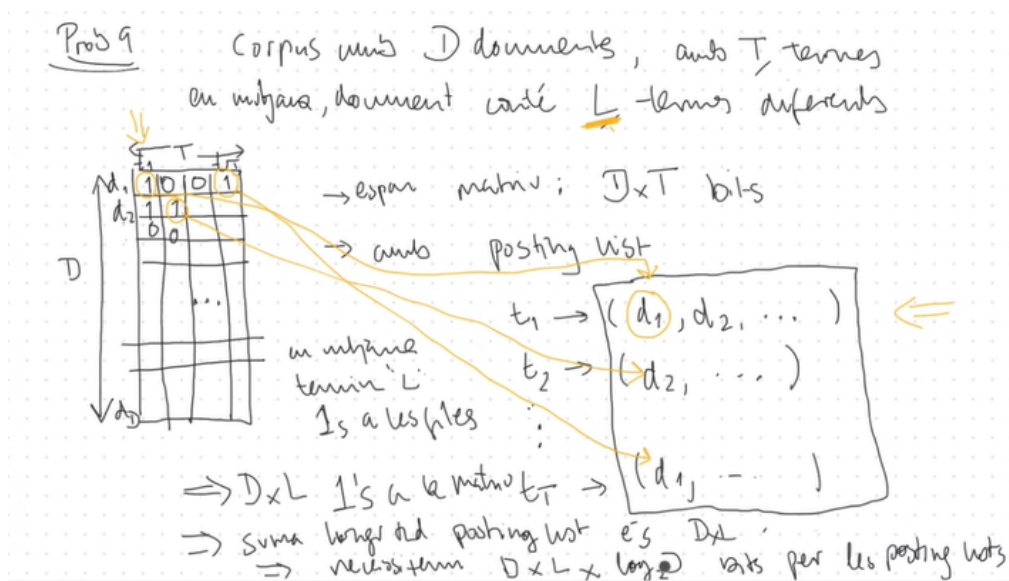 Prob 9 Corpus amb D documents, amb T termes
en mitjana, document conté L termes diferents
T
t1 tT
d1 1 0 0 1
→ espai matriu: D×T bits
d2 1 1
0 0
→ amb posting list
D
...
t1 → (d1, d2, ... )
en mitjana
tenim L
1s a les files
t2 → (d2, ....)
⋮
dD
tT → (d1, -- )
⇒ D×L 1's a la matriu
⇒ suma longitud posting list és D×L
⇒ necessitem D×L× log2D bits per les posting lists